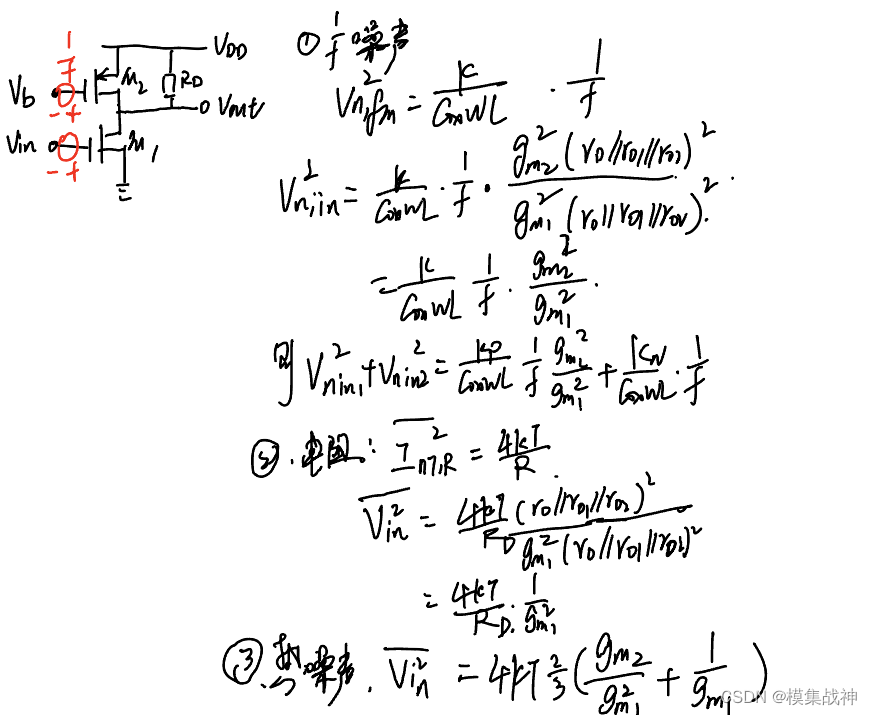 1/f
V_DD
① 1/f 噪声
M_2
R_D
V_b
- +
V_out
V_in
M_1
- +
V_{n,fn}^2 = K/(C_{ox}WL) · 1/f
V_{n,in}^2 = K/(C_{ox}WL) · 1/f · g_{m2}^2 (r_0//r_{01}//r_{02})^2 / g_{m1}^2 (r_0//r_{01}//r_{02})^2 .
= K/(C_{ox}WL) 1/f · g_{m2}^2/g_{m1}^2 .
则 V_{nin1}^2 + V_{nin2}^2 = K_P/(C_{ox}WL) 1/f g_{m2}^2/g_{m1}^2 + K_N/(C_{ox}WL) · 1/f
② . 电阻 : I_{n,R}^2 = 4kT/R
V_{in}^2 = 4kT/R_D (r_0//r_{01}//r_{02})^2 / g_{m1}^2 (r_0//r_{01}//r_{02})^2
= 4kT/R_D · 1/g_{m1}^2
③ . 热噪声 . V_{in}^2 = 4kT 2/3 ( g_{m2}/g_{m1}^2 + 1/g_{m1} )
CSDN @模集战神